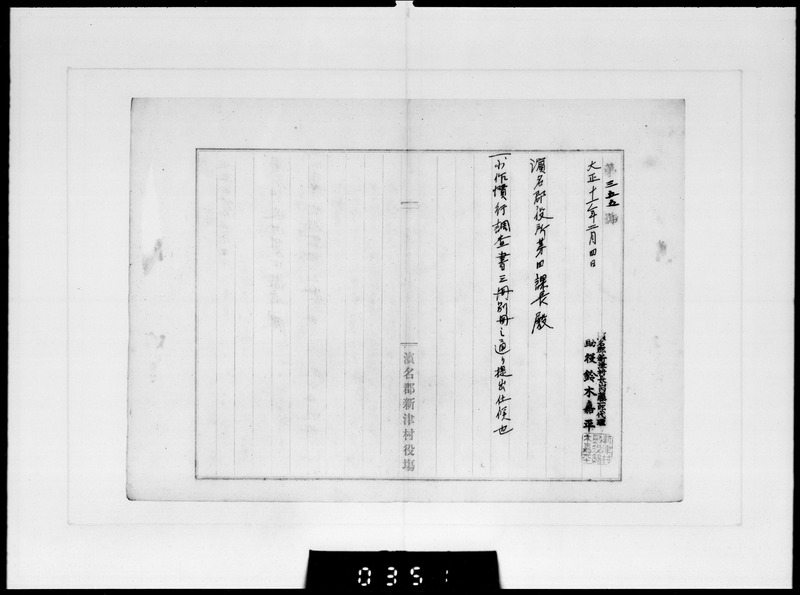 第三五五号
大正十一年二月四日
助役 鈴木嘉平
濱名郡役所第四課長殿
一小作慣行調査書三冊別冊之通り提出仕候也
濱名郡新津村役場
0351